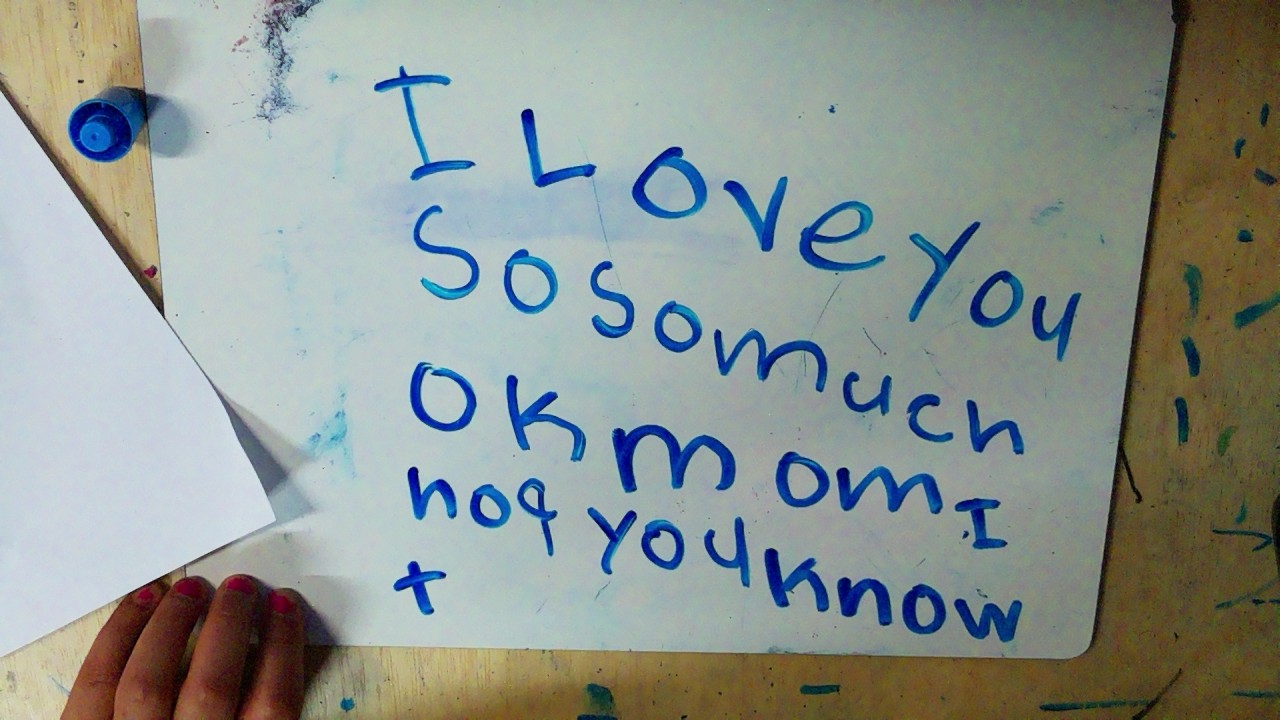 I Love you
So so much
Ok mom I
hoq you know
t